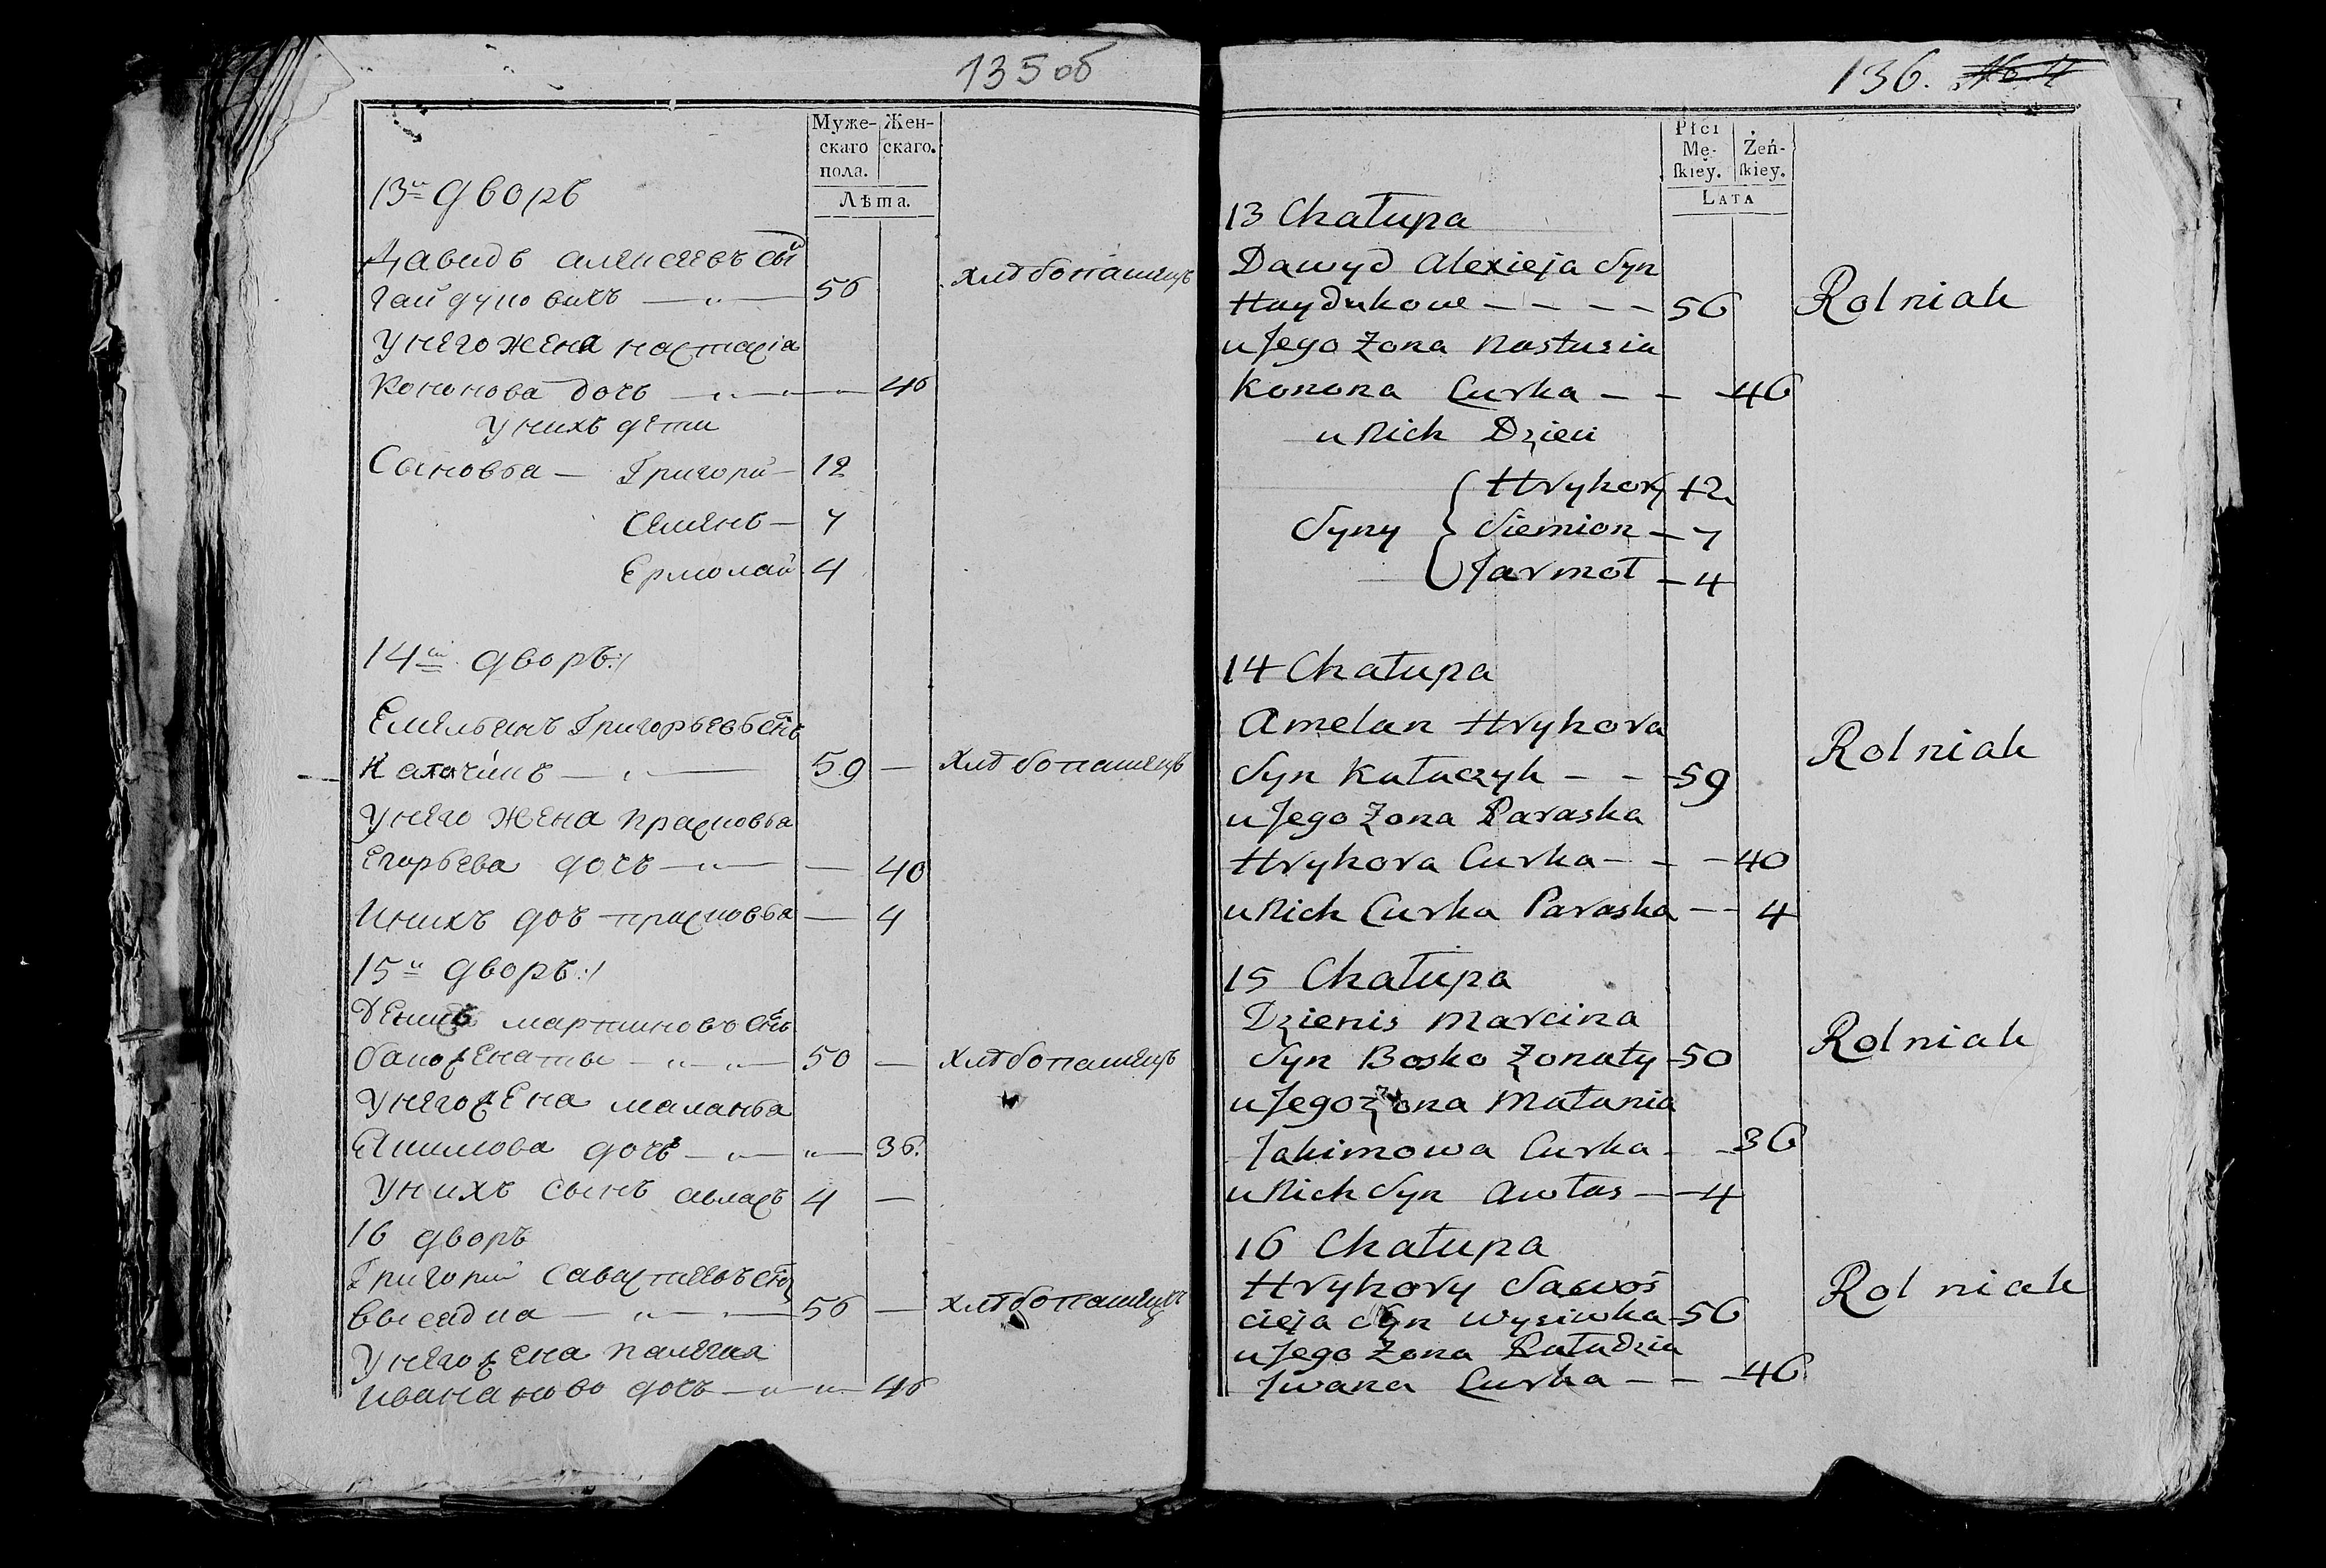 135об
Муже-
скаго
пола.
Жен-
скаго.
Лѣта.
13й дворъ
Давидъ алексеевъ сы
гайдуковичъ — 56 хлебопашецъ
У него жена настасіа
Кононова дочь — 46
У нихъ дети
Сыновъа — Григори — 12
Семенъ — 7
Ермолай 4
14й дворъ:/
Емельянъ Григорьевъ снъ
Калачикъ — 59 — хлебопашецъ
У него жена прасковъа
Егорьева дочь — — 40
У нихъ доч прасковьа — 4
15й дворъ:/
Денисъ мартиновъ снъ
50 — хлебопашецъ
У него жена маланьа
Якимова дочь — 36.
У нихъ сынъ авласъ 4 —
16 дворъ
Григорий Савастеевъ
56 — хлебопашецъ
У него жена палегея
дочь — 46
136.
Płci
Mę-
skiey.
Żeń-
skiey.
LATA
13 Chałupa
Dawyd Alexieja Syn
Haydukow – – – – 56 Rolniak
u Jego Żona Nastusia
Konona Curka – – – 46
u Nich Dzieci
Hrykory 12
Syny { Siemion – 7
Jarmoł – 4
14 Chałupa
Amelan Hrykora
Syn Kałaczyk – – – 59 Rolniak
u Jego Żona Paraska
Hrykora Curka – – – 40
u Nich Curka Paraska – – 4
15 Chałupa
Dzienis Marcina
Syn Bosko Żonaty – 50 Rolniak
u Jego Żona Małania
Jakimowa Curka – – 36
u Nich Syn Awłas – – 4
16 Chałupa
Hrykory Sawoś
cieja Syn Wysiwka – 56 Rolniak
u Jego Żona Paładzia
Jwana Curka – – – 46